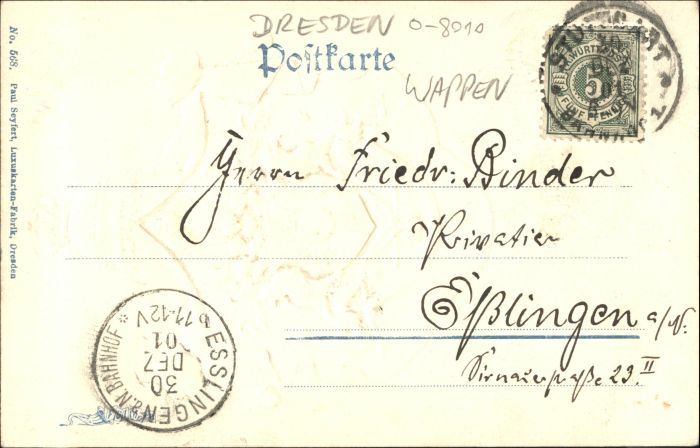 DRESDEN 0-8010
Postkarte
WAPPEN
STUTTGART
K. WÜRTTEMB.
5
FÜNF PFENNIG
No. 568. Paul Seyfert, Luxuskarten-Fabrik, Dresden
Herrn Friedr: Binder
Privatier
Eßlingen a/N.
Sirnauerstraße 23. II
ESSLINGEN a.N. BAHNHOF
30
DEZ
01
11-12V